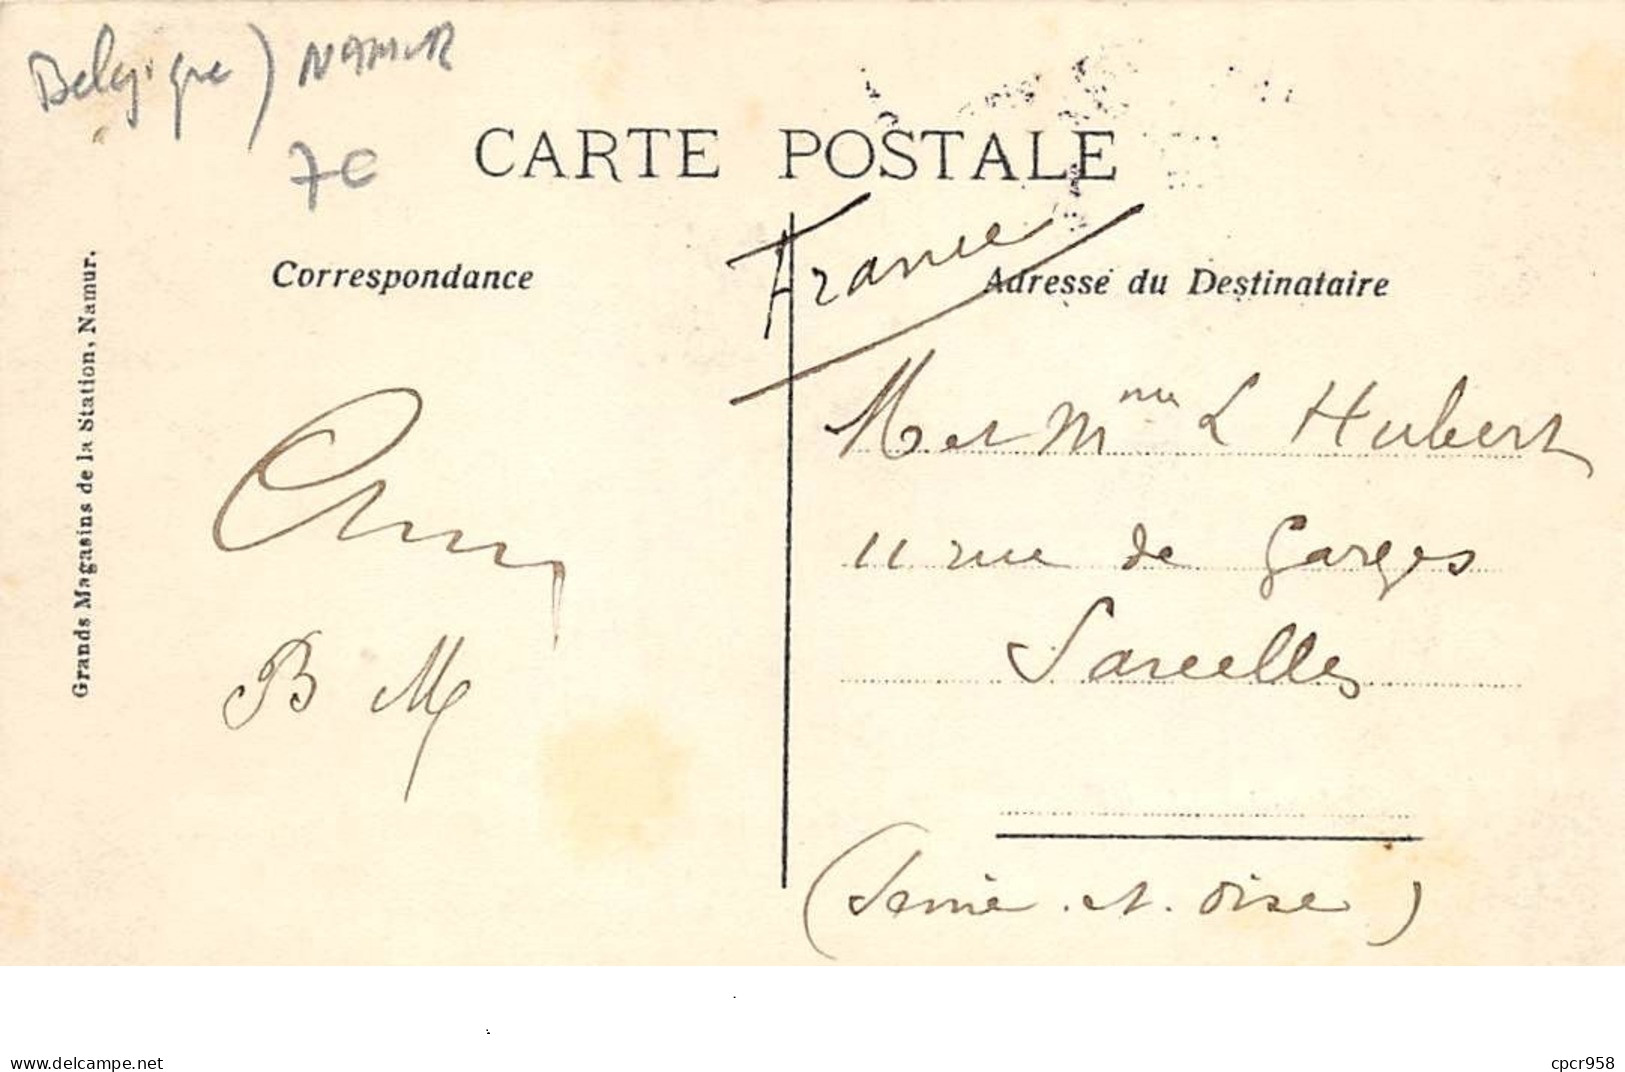 Belgique) NAMUR
7€
CARTE POSTALE
Grands Magasins de la Station, Namur.
Correspondance
France
Adresse du Destinataire
M et Mme L Hubert
11 rue de Garges
Sarcelles
(Seine-et-Oise)
B M
www.delcampe.net
cpcr958